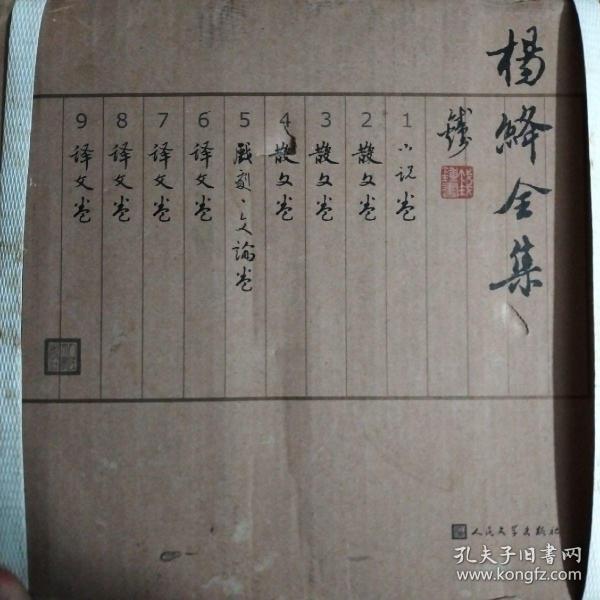 杨绛全集
1 小说卷
2 散文卷
3 散文卷
4 散文卷
5 戏剧·文论卷
6 译文卷
7 译文卷
8 译文卷
9 译文卷
人民文学出版社
孔夫子旧书网
www.kongfz.com